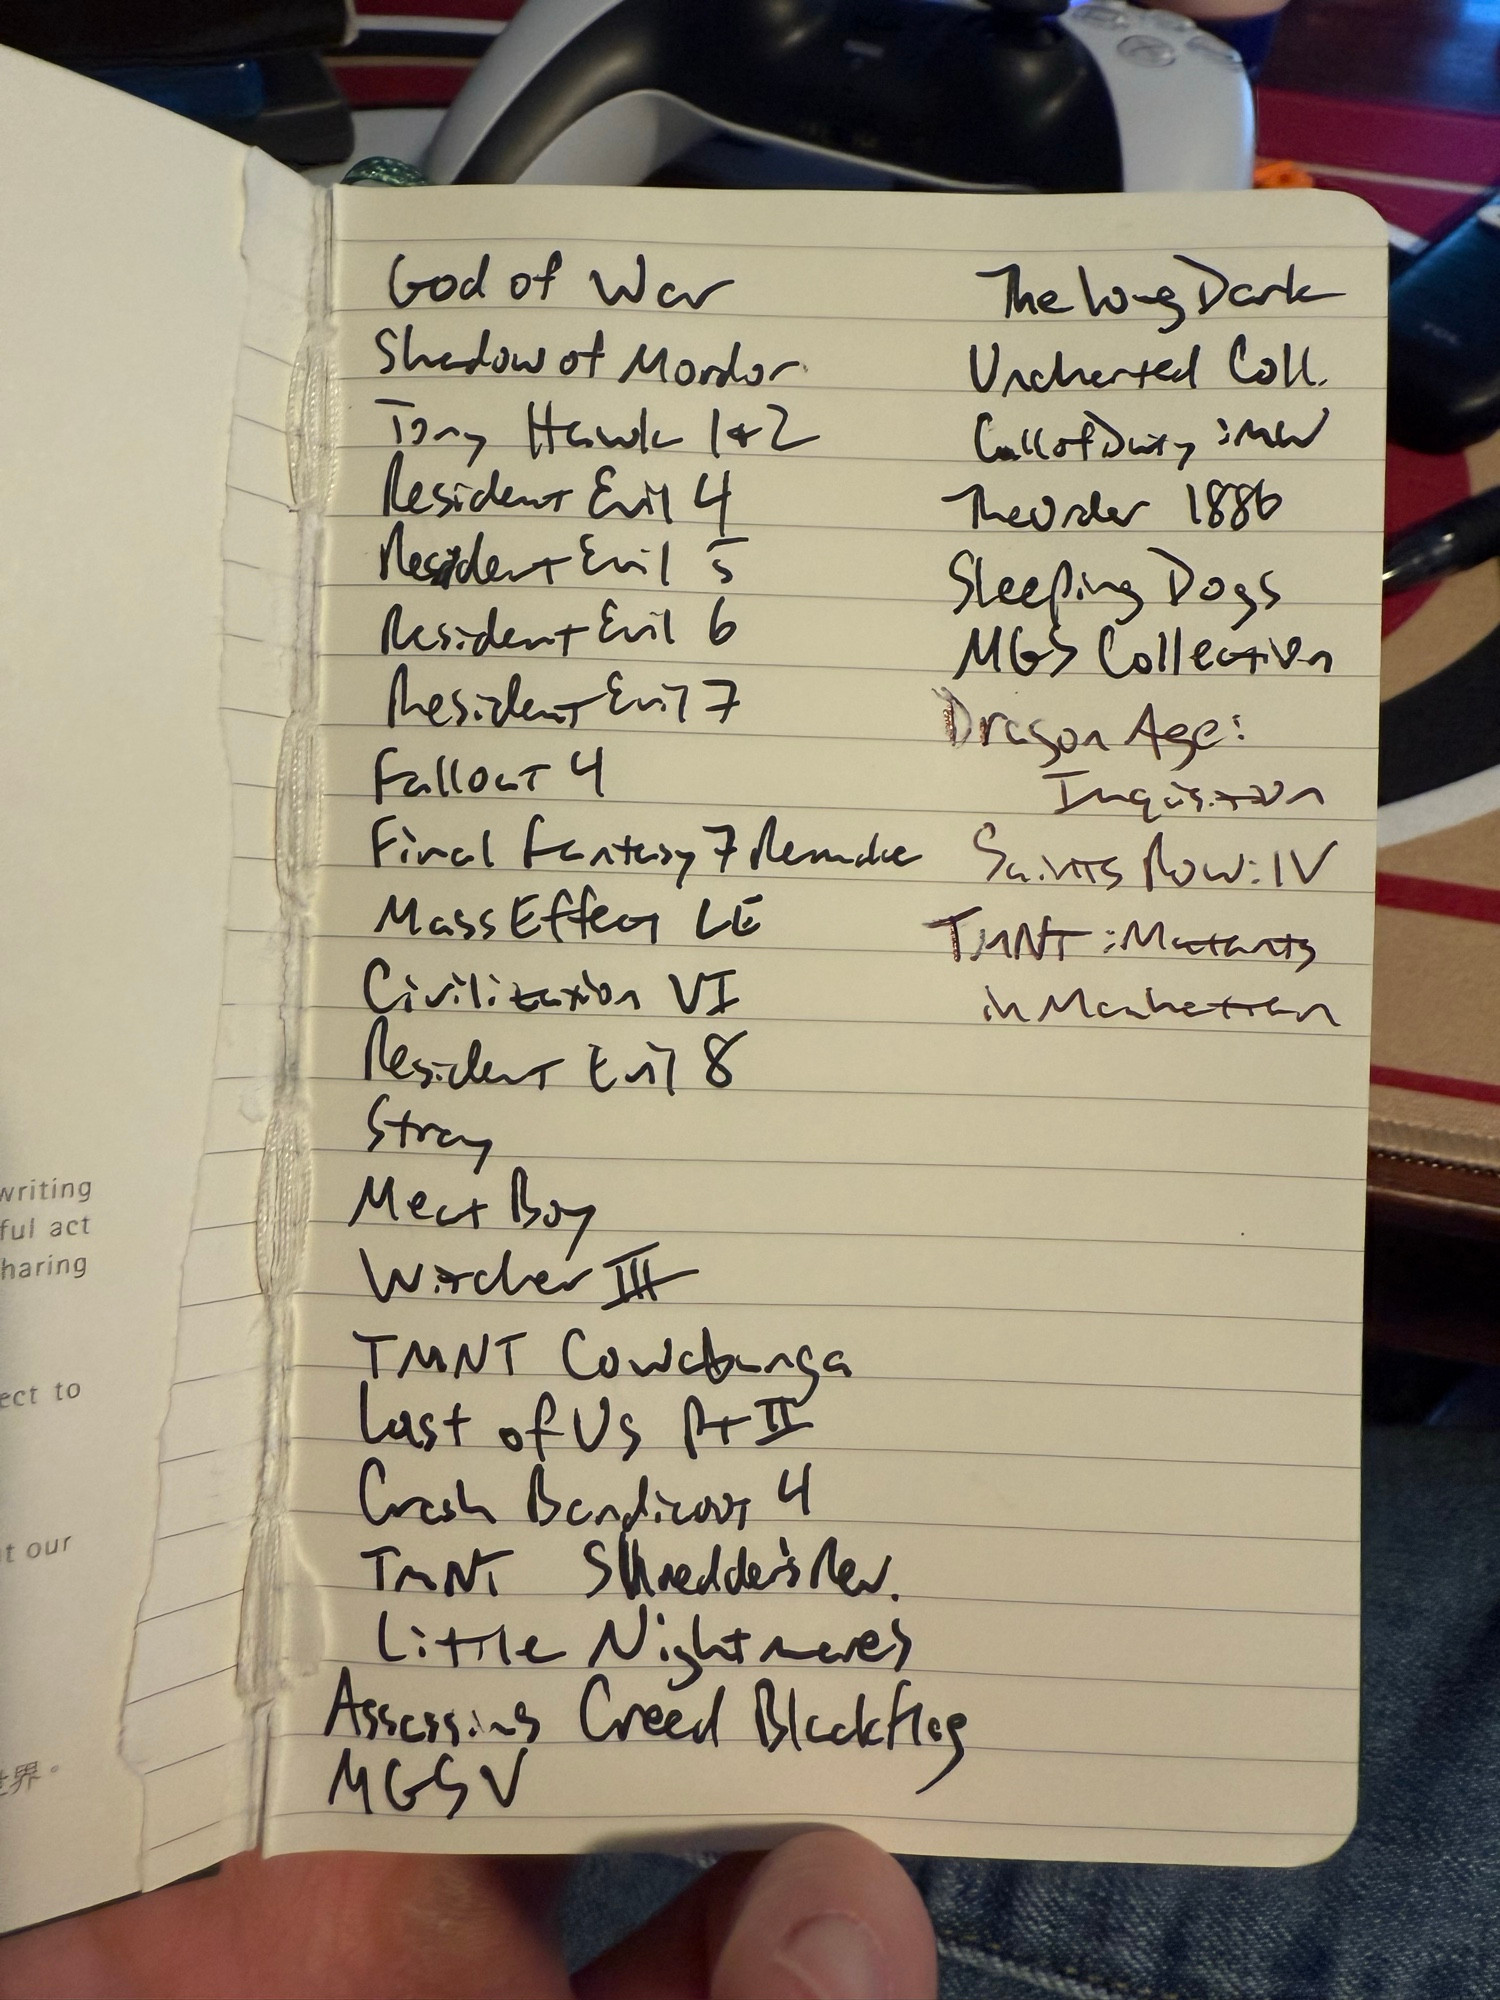 God of War
Shadow of Mordor
Tony Hawk 1&2
Resident Evil 4
Resident Evil 5
Resident Evil 6
Resident Evil 7
Fallout 4
Final Fantasy 7 Remake
Mass Effect LE
Civilization VI
Resident Evil 8
Stray
Meat Boy
Witcher III
TMNT Cowabunga
Last of Us Pt II
Crash Bandicoot 4
TMNT Shredder's Rev.
Little Nightmares
Assassins Creed Blackflag
MGS V
The Long Dark
Uncharted Coll.
Call of Duty: MW
The Order 1886
Sleeping Dogs
MGS Collection
Dragon Age:
Inquisition
Saints Row: IV
TMNT: Mutants
in Manhattan
writing
ful act
haring
ect to
t our
世界。